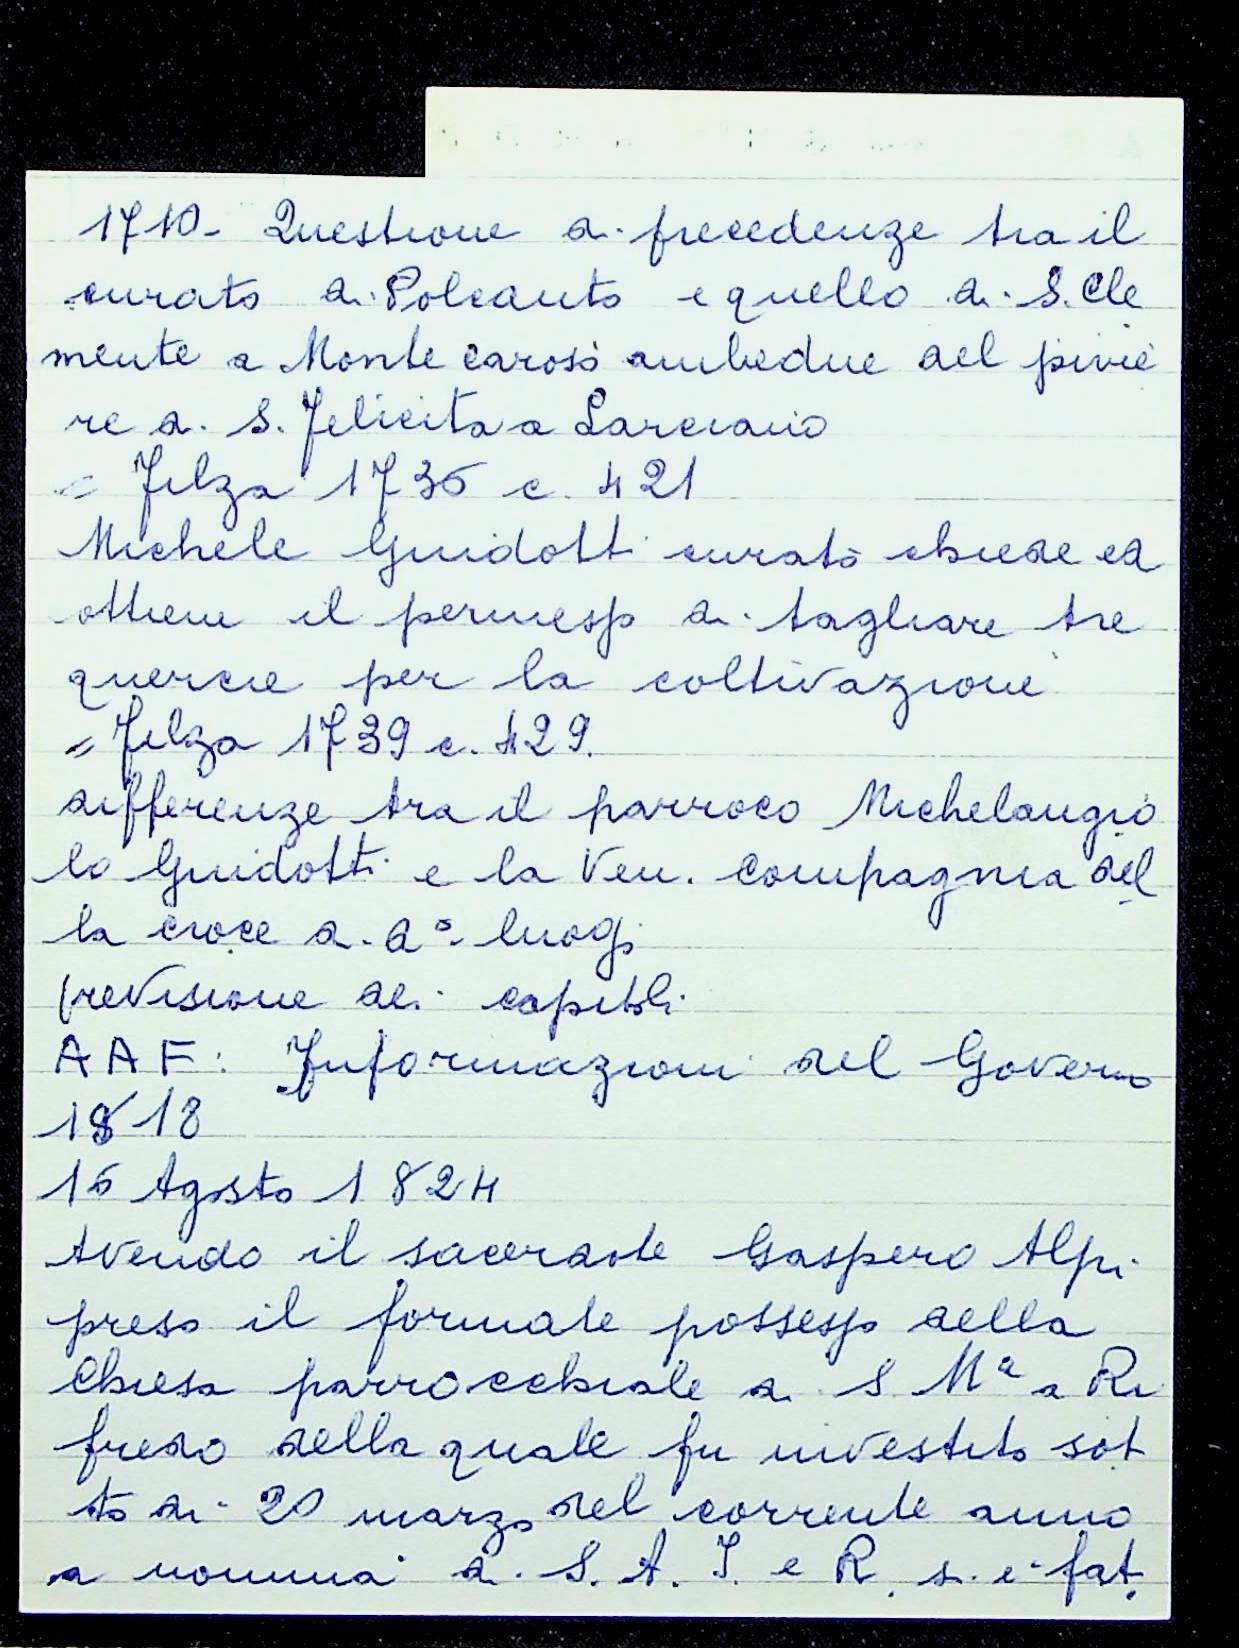 1710 - Questione di precedenze tra il
curato di Polcanto e quello di S. Cle
mente a Montecaroso ambedue del pivie
re di S. Felicita a Larciano
= Filza 1736 c. 421
Michele Guidotti curato chiede ed
ottiene il permesso di tagliare tre
quercie per la coltivazione
= Filza 1739 c. 429.
differenze tra il parroco Michelangio
lo Guidotti e la Ven. Compagnia del
la croce di do. luogo
(revisione dei capitoli
AAF: Informazioni del Governo
1818
16 Agosto 1824
Avendo il sacerdote Gaspero Alpi
preso il formale possesso della
Chiesa parrocchiale di S Ma a Ri
fredo della quale fu investito sot
to di 20 marzo del corrente anno
a nomina di S. A. I. e R. si è fat